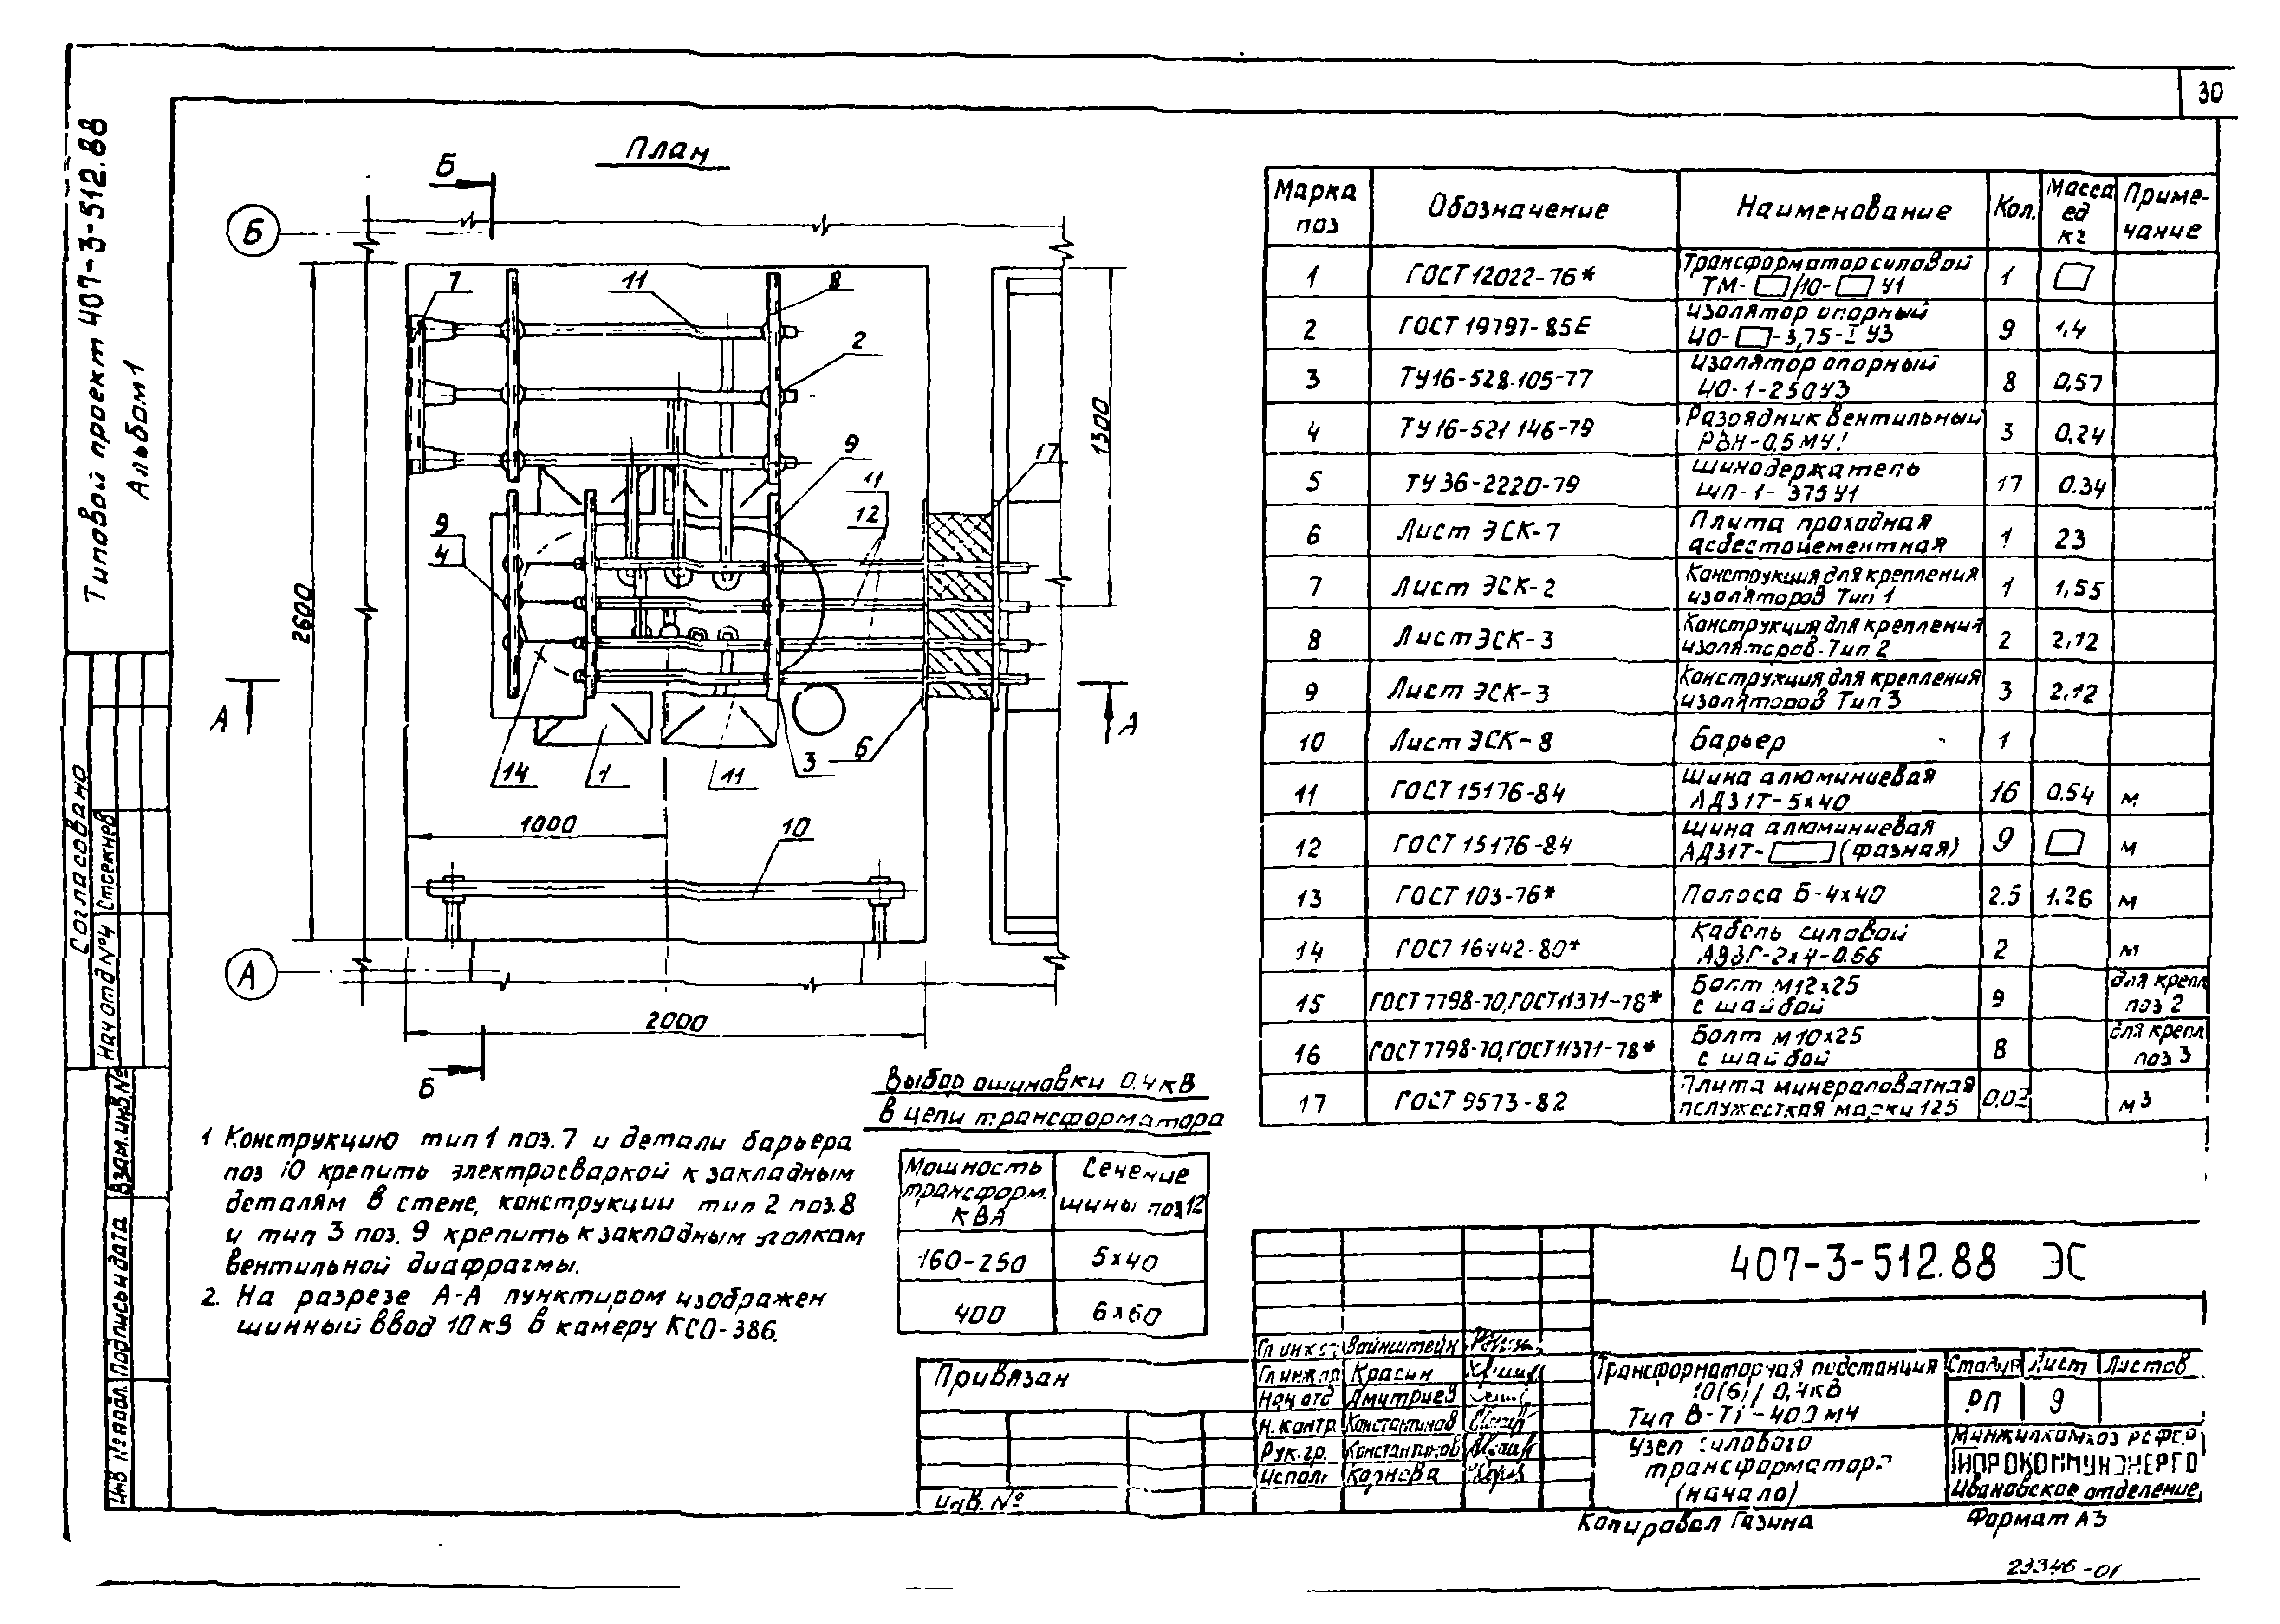 30
Типовой проект 407-3-512.88
Альбом 1
План
Б
Б
7
11
8
2
9
11
12
17
9
4
2600
1300
А
А
14
1
11
3
6
1000
10
А
2000
Б
Марка поз
Обозначение
Наименование
Кол.
Масса ед кг
Приме-чание
1 ГОСТ 12022-76* Трансформатор силовой ТМ- /10- У1 1
2 ГОСТ 19797-85Е Изолятор опорный ИО- -3,75-I У3 9 1,4
3 ТУ16-528.105-77 Изолятор опорный ИО-1-250У3 8 0,57
4 ТУ16-521 146-79 Разрядник вентильный РВН-0.5МУ1 3 0,24
5 ТУ36-2220-79 Шинодержатель ШП-1-375У1 17 0.34
6 Лист ЭСК-7 Плита проходная асбестоцементная 1 23
7 Лист ЭСК-2 Конструкция для крепления изоляторов Тип 1 1 1,55
8 Лист ЭСК-3 Конструкция для крепления изоляторов. Тип 2 2 2,12
9 Лист ЭСК-3 Конструкция для крепления изоляторов Тип 3 3 2.12
10 Лист ЭСК-8 Барьер 1
11 ГОСТ 15176-84 Шина алюминиевая АД31Т-5х40 16 0.54 м
12 ГОСТ 15176-84 Шина алюминиевая АД31Т- (фазная) 9 м
13 ГОСТ 103-76* Полоса Б-4х40 2.5 1.26 м
14 ГОСТ 16442-80* Кабель силовой АВВГ-2х4-0.66 2 м
15 ГОСТ 7798-70, ГОСТ 11371-78* Болт М12х25 с шайбой 9 для крепл поз 2
16 ГОСТ 7798-70, ГОСТ 11371-78* Болт М10х25 с шайбой 8 для крепл поз 3
17 ГОСТ 9573-82 Плита минераловатная полужесткая марки 125 0,02 м3
Выбор ошиновки 0.4кВ
в цепи трансформатора
Мощность трансформ. кВА
Сечение шины поз 12
160-250 5х40
400 6х60
1 Конструкцию тип 1 поз. 7 и детали барьера
поз 10 крепить электросваркой к закладным
деталям в стене, конструкции тип 2 поз. 8
и тип 3 поз. 9 крепить к закладным полкам
вентильной диафрагмы.
2. На разрезе А-А пунктиром изображен
шинный ввод 10кВ в камеру КСО-386.
Согласовано
Нач отд №4
Взам.инв.№
Подпись и дата
Инв № подл.
Привязан
Инв. №
Вайнштейн
Гл инж пр Красин
Нач отд Дмитриев
Н.контр Константинов
Рук.гр. Константинов
Исполн Корнева
407-3-512.88 ЭС
Трансформаторная подстанция
10(6)/0,4кВ
Стадия Лист Листов
РП 9
Узел силового
трансформатора
(начало)
Минжилкомхоз РСФСР
ГИПРОКОММУНЭНЕРГО
Ивановское отделение
Копировал Газина
Формат А3
23346-01